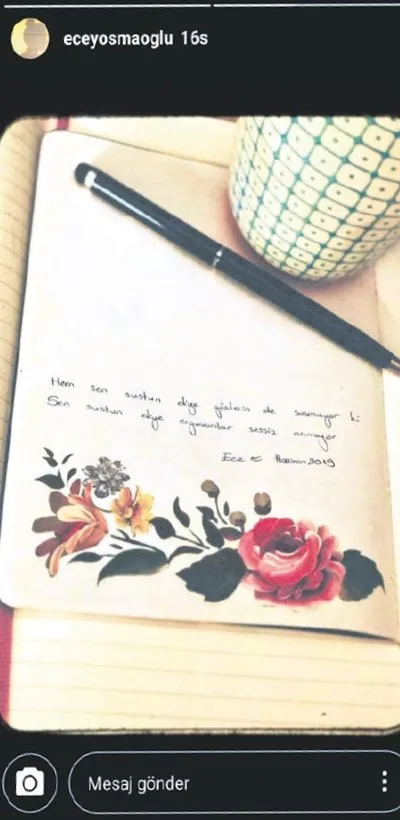 eceyosmaoglu 16s
Hem sen sustun diye gözlerin de susmuyor ki
Sen sustun diye erguvanlar sessiz açmıyor
Ece Haziran 2019
Mesaj gönder